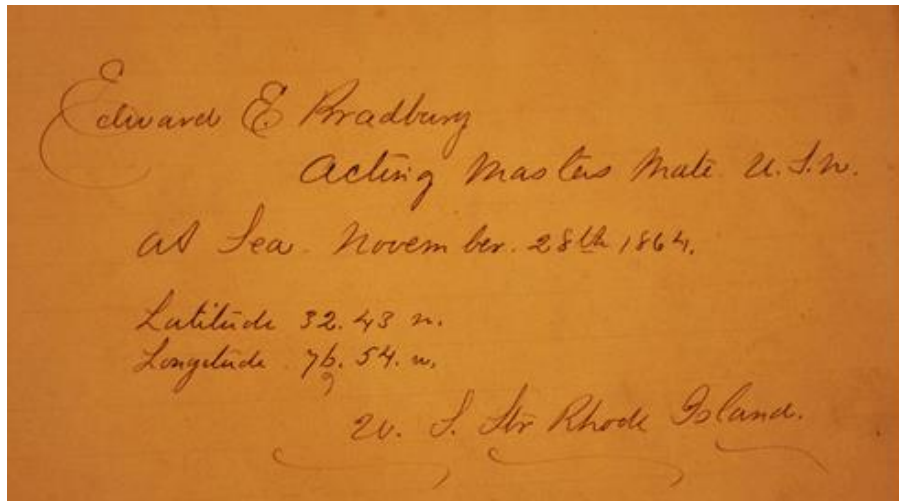 Edward E. Bradbury
Acting Masters Mate. U.S.N.
At Sea. November. 28th 1864.
Latitude 32.43 N.
Longitude 76.54. W.
U. S. Str Rhode Island.